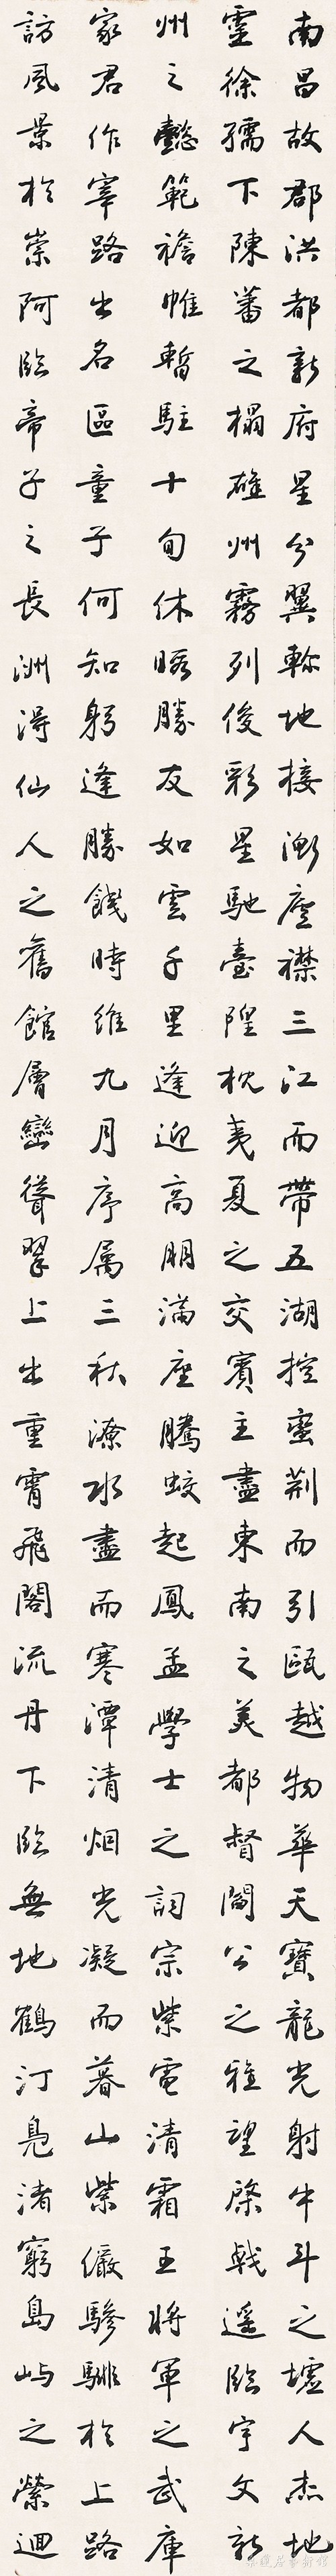 南昌故郡洪都新府星分翼軫地接衡廬襟三江而帶五湖控蠻荊而引甌越物華天寶龍光射牛斗之墟人杰地
靈徐孺下陳蕃之榻雄州霧列俊彩星馳臺隍枕夷夏之交賓主盡東南之美都督閻公之雅望棨戟遥臨宇文新
州之懿範襜帷暫駐十旬休暇勝友如雲千里逢迎高朋滿座騰蛟起鳳孟學士之詞宗紫電清霜王將軍之武庫
家君作宰路出名區童子何知躬逢勝餞時維九月序属三秋潦水盡而寒潭清烟光凝而暮山紫儼驂騑於上路
訪風景於崇阿臨帝子之長洲得仙人之舊館層巒聳翠上出重霄飛閣流丹下臨無地鶴汀鳧渚窮島屿之縈迴